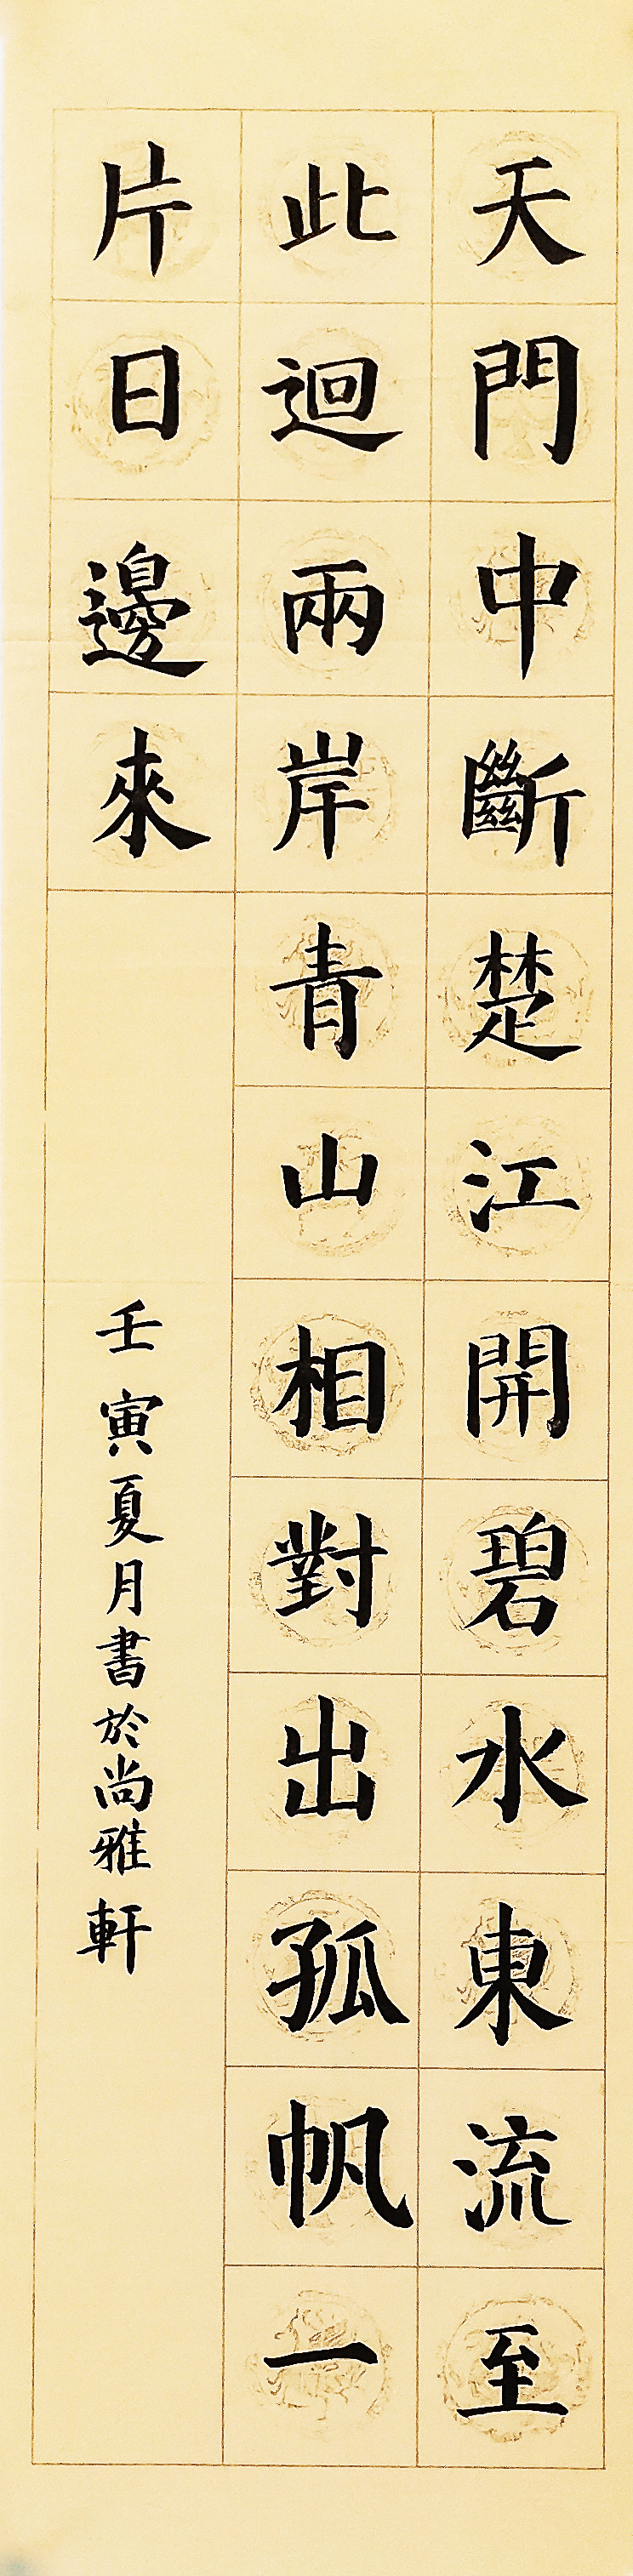 天門中斷楚江開碧水東流至
此迴兩岸青山相對出孤帆一
片日邊來
壬寅夏月書於尚雅軒